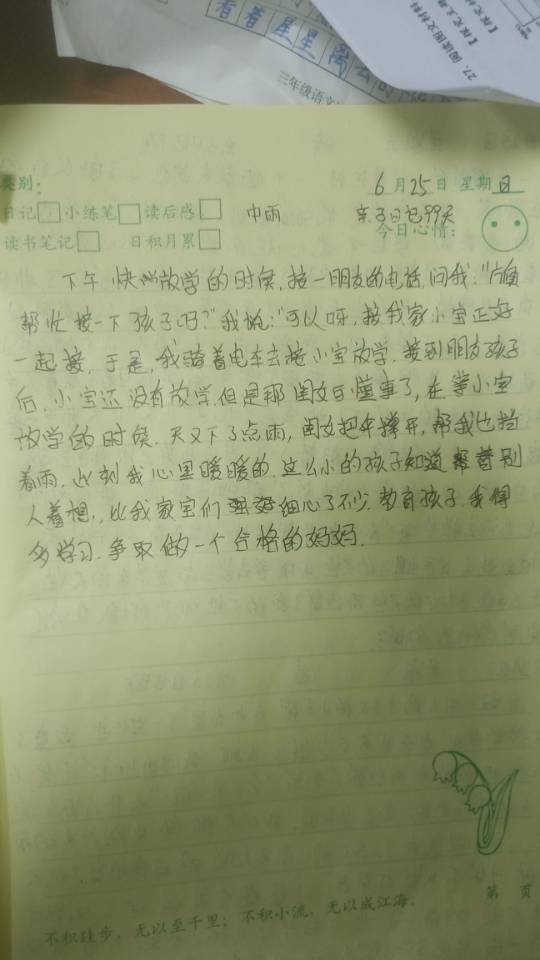 看着星星离
三年级语文
27. 阅读图文材料
类别：
6月25日 星期日
日记 小练笔 读后感
中雨 亲子日记99天
读书笔记 日积月累 今日心情：
下午快放学的时候，接一朋友的电话，问我："能
帮忙接一下孩子吗？"我说："可以呀，接我家小宝正好
一起接，于是，我骑着电车去接小宝放学，接到朋友孩子
后，小宝还没有放学，但是那闺女可懂事了，在等小宝
放学的时候，天又下了点雨，闺女把伞撑开，帮我也挡
着雨，此刻我心里暖暖的，这么小的孩子知道帮着别
人着想，比我家宝们细心了不少，教育孩子，我得
多学习，争取做一个合格的妈妈。
第 页
不积跬步，无以至千里；不积小流，无以成江海。